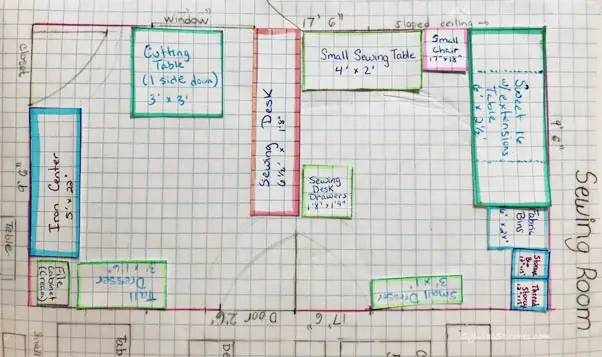 window
17' 6"
sloped ceiling →
closet
Cutting
Table
(1 side down)
3' x 3'
Sewing Desk
6½' x 1'8"
Small Sewing Table
4' x 2'
Small
Chair
17" x 18"
Sweet 16
w/extensions
Table
6' x 2½'
9' 6"
Sewing Room
Iron Center
5' x 22"
9' 6"
Sewing
Desk
Drawers
1'8" x 1'9"
Fabric
Bins
Storage
Bin
Thread
Storage
File
Cabinet
(Green)
Tall
Dresser
3' x 1'6"
Small Dresser
3' x 1'
Door 2'6"
17' 6"
Table